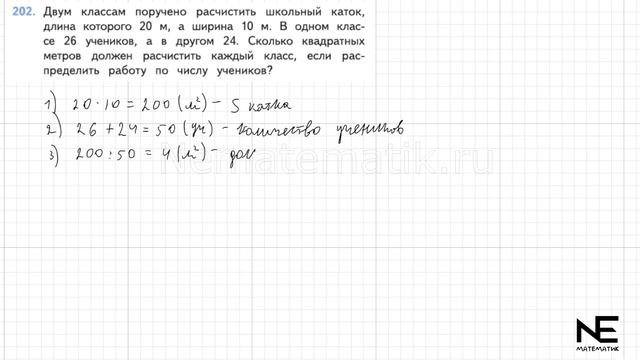 202. Двум классам поручено расчистить школьный каток,
длина которого 20 м, а ширина 10 м. В одном клас-
се 26 учеников, а в другом 24. Сколько квадратных
метров должен расчистить каждый класс, если рас-
пределить работу по числу учеников?
1) 20 · 10 = 200 (м²) - S катка
2) 26 + 24 = 50 (уч) - количество учеников
3) 200 : 50 = 4 (м²) - дол
Nematematik.ru
NE
МАТЕМАТИК